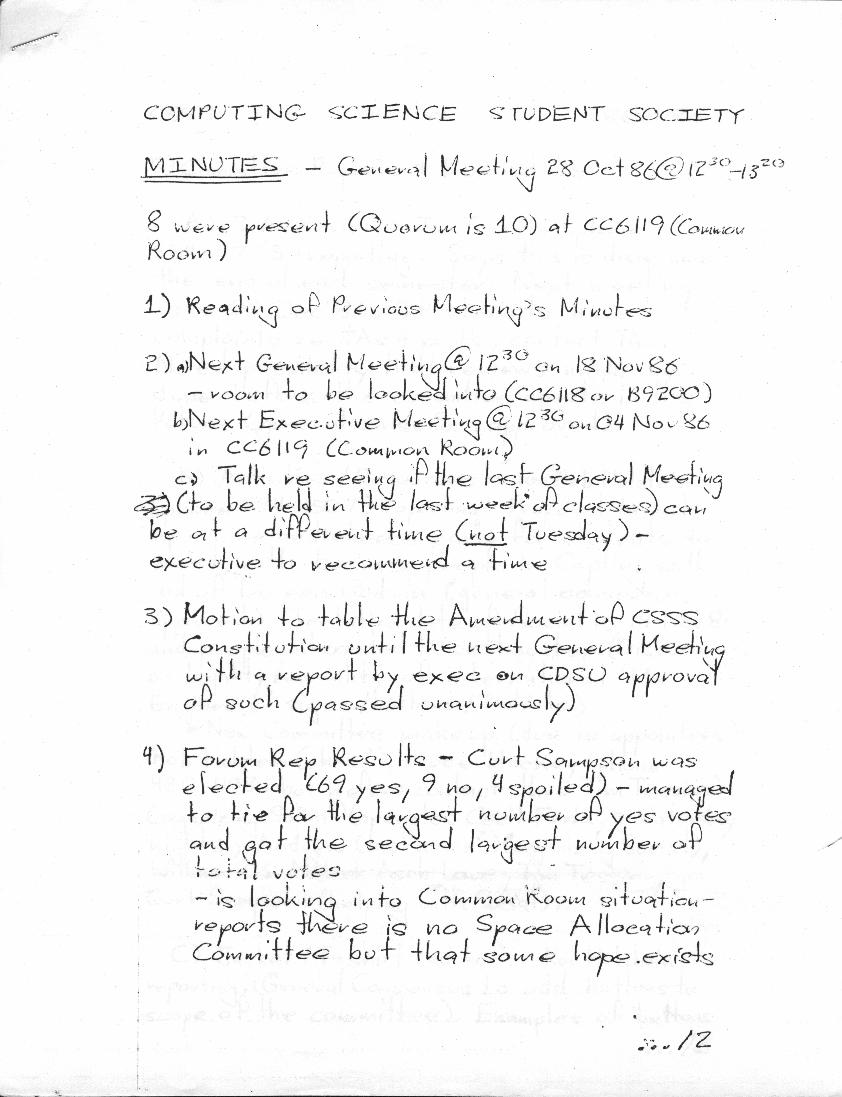 COMPUTING SCIENCE STUDENT SOCIETY
MINUTES - General Meeting 28 Oct 86 @ 12³⁰-13²⁰
8 were present (Quorum is 10) at CC6119 (Common
Room)
1) Reading of Previous Meeting's Minutes
2) a) Next General Meeting @ 12³⁰ on 18 Nov 86
- room to be looked into (CC6118 or B9200)
b) Next Executive Meeting @ 12³⁰ on 04 Nov 86
in CC6119 (Common Room)
c) Talk re seeing if the last General Meeting
(to be held in the last week of classes) can
be at a different time (not Tuesday) -
executive to recommend a time
3) Motion to table the Amendment of CSSS
Constitution until the next General Meeting
with a report by exec on CDSU approval
of such (passed unanimously)
4) Forum Rep Results - Curt Sampson was
elected (69 yes, 9 no, 4 spoiled) - managed
to tie for the largest number of yes votes
and got the second largest number of
total votes
- is looking into Common Room situation -
reports there is no Space Allocation
Committee but that some hope exists
.../2